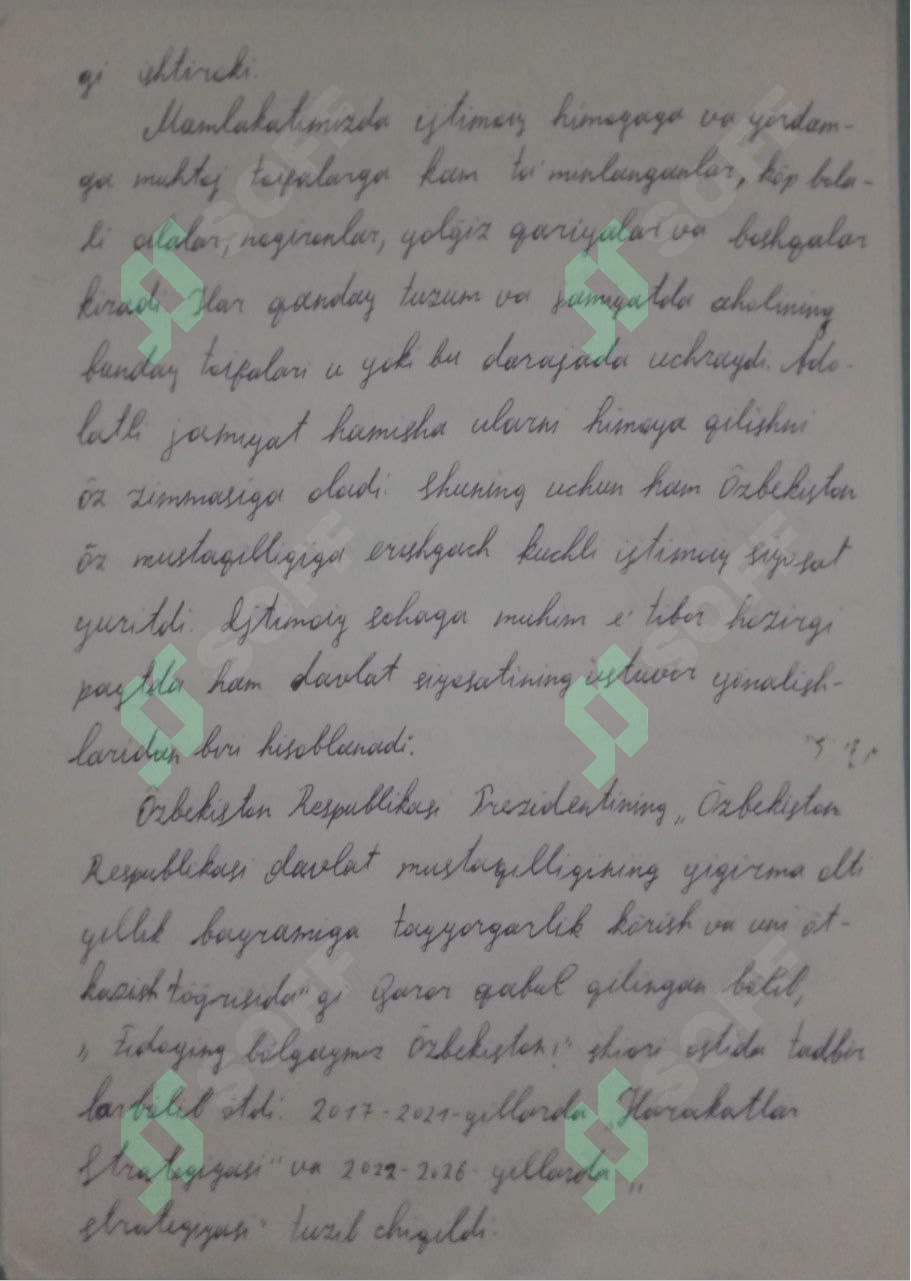 gi ishtiroki.
Mamlakatimizda ijtimoiy himoyaga va yordam-
ga muhtoj toifalarga kam ta'minlanganlar, köp bola-
li oilalar, nogironlar, yolğiz qariyalar va boshqalar
kiradi. Har qanday tuzum va jamiyatda aholining
bunday toifalari u yoki bu darajada uchraydi. Ado-
latli jamiyat hamisha ularni himoya qilishni
öz zimmasiga oladi. Shuning uchun ham Özbekiston
öz mustaqilligiga erishgach kuchli ijtimoiy siyosat
yuritdi. Ijtimoiy sohaga muhim e'tibor hozirgi
paytda ham davlat siyosatining ustuvor yönalish-
laridan biri hisoblanadi.
Özbekiston Respublikasi Prezidentining „Özbekiston
Respublikasi davlat mustaqilligining yigirma olti
yillik bayramiga tayyorgarlik körish va uni öt-
kazish töğrisida" gi Qaror qabul qilingan bölib,
„Fidoying bölgaymiz Özbekiston!" shiori ostida tadbir
lar bölib ötdi. 2017-2021-yillarda „Harakatlar
Strategiyasi" va 2022-2026-yillarda „
strategiyasi" tuzib chiqildi.
SOFF
SOFF
SOFF
SOFF
SOFF
SOFF